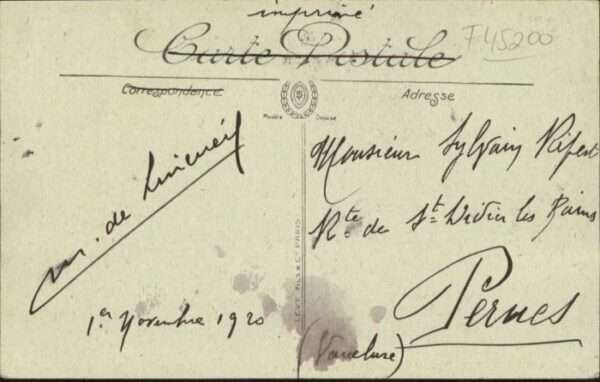 imprimé
Carte Postale
F45200
Correspondance
Adresse
Modèle Déposé
Monsieur Sylvain Rifest
Rte de St Didier les Bains
Pernes
(Vaucluse)
m. de
1er Novembre 1920
LEVY FILS & Cie PARIS